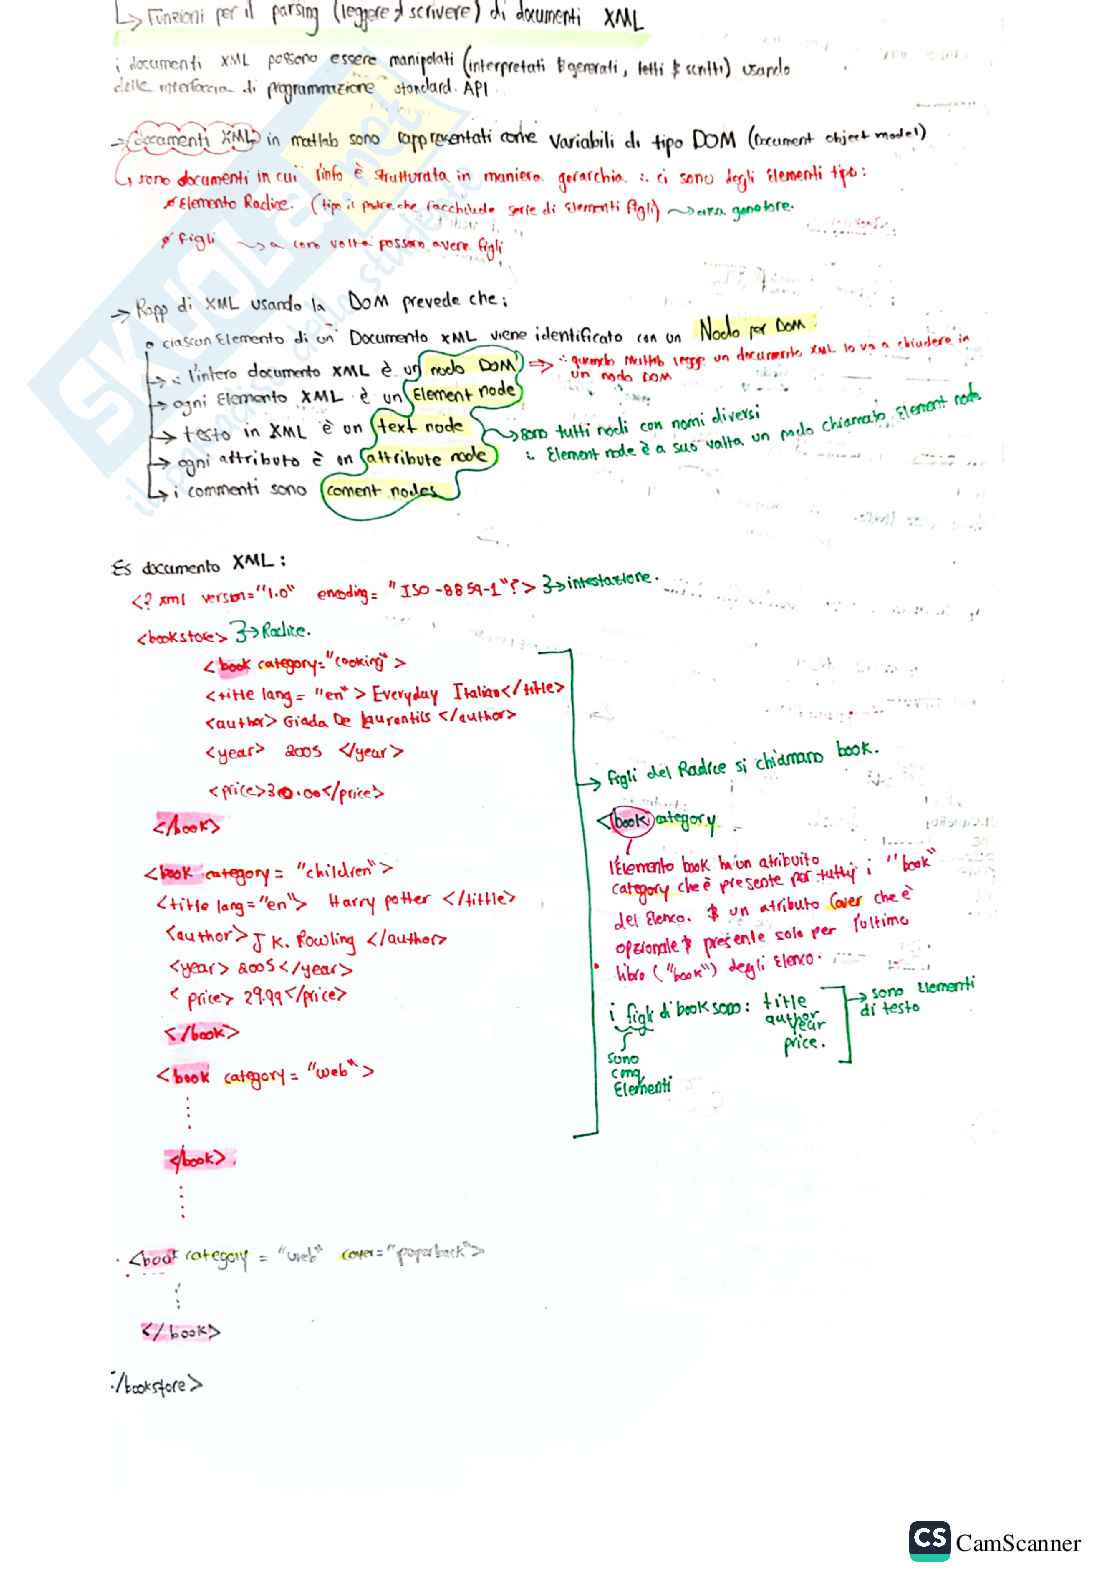 ↳ Funzioni per il parsing (leggere & scrivere) di documenti XML
i documenti XML possono essere manipolati (interpretati & generati, letti & scritti) usando
delle interfaccia di programmazione standard API
→ documenti XML in matlab sono rappresentati come variabili di tipo DOM (Document object model)
↳ sono documenti in cui l'info è strutturata in maniera gerarchia ∴ ci sono degli Elementi tipo:
* Elemento Radice. (tipo il padre che racchiude serie di Elementi figli) → genitore.
* figli → a loro volta possono avere figli
→ Rapp di XML usando la DOM prevede che:
• ciascun Elemento di un Documento XML viene identificato con un Nodo per DOM:
→ ∴ l'intero documento XML è un nodo DOM ⇒ ∴ quando Matlab legge un documento XML lo va a chiudere in
un nodo DOM
→ ogni Elemento XML è un Element node
→ testo in XML è un text node → sono tutti nodi con nomi diversi
→ ogni attributo è un attribute node ∴ Element node è a suo volta un nodo chiamato Element node
↳ i commenti sono coment nodes
Es documento XML:
<? xml version="1.0" encoding="ISO-8859-1"?> 3→ intestazione.
<bookstore> 3→ Radice.
<book category="cooking">
<title lang="en"> Everyday Italian</title>
<author> Giada De Laurentiis </author>
<year> 2005 </year>
→ figli del Radice si chiamano book.
<price>30.00</price>
<book category
</book>
l'Elemento book ha un atribuito
<book category = "children">
category che è presente per tutty i "book"
<title lang="en"> Harry potter </tittle>
del Elenco. & un atributo Cover che è
<author> J K. Rowling </author>
opzionale & presente solo per l'ultimo
<year> 2005</year>
libro ("book") degli Elenco.
<price> 29.99</price>
i figli di book sono: title
author
year
price.
→ sono Elementi
di testo
</book>
sono
cmq
Elementi
<book category = "web">
</book>
<book category = "web" cover="paperback">
</book>
</bookstore>
SKUOLA.net
il paradiso dello studente
CS CamScanner